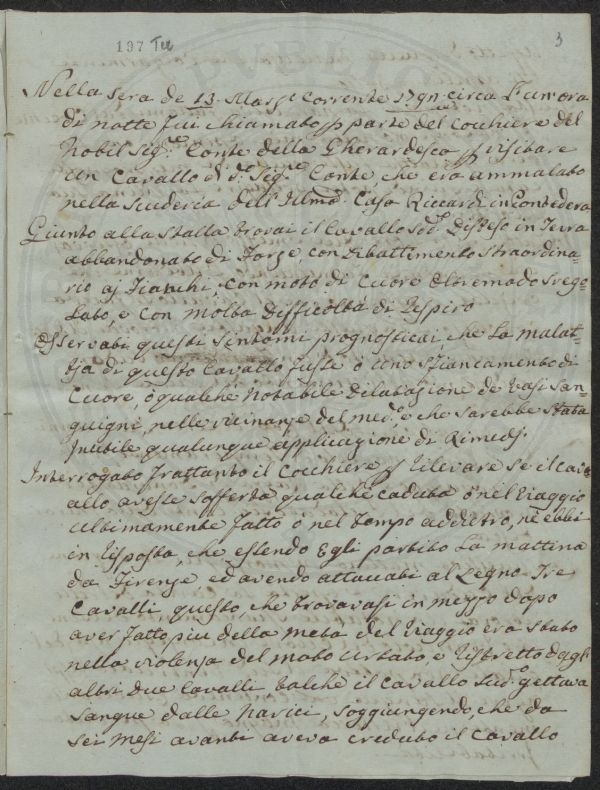 197 Ter
3
Nella sera de 13. Marzo Corrente 1790. circa l'un'ora
di notte fui chiamato p parte del Cocchiere del
Nobil Sig.re Conte della Gherardesca p visitare
un Cavallo di d.o Sig.re Conte che era ammalato
nella scuderia dell' Illma Casa Riccardi in Pontedera
Giunto alla stalla trovai il Cavallo sud.o Disteso in Terra
abbandonato di forze, con Dibattimento straordina=
rio aj fianchi, con moto di Cuore oltremodo srego=
lato, e con molta difficoltà di respiro
Osservati questi sintomi prognosticai, che La malat=
tja di questo Cavallo fusse ò uno sfiancamento di
Cuore, ò qualche Notabile Dilatazione de Vasi San=
guigni, nelle vicinanze del med.o e che sarebbe stata
Inutile qualunque applicazione di Rimedj.
Interrogato frattanto il Cocchiere p rilevare se il cav=
allo avesse sofferta qualche caduta ò nel viaggio
ultimamente fatto ò nel tempo addietro, nè ebbi
in risposta, che essendo Egli partito La mattina
da Firenze ed avendo attaccati al Legno Tre
Cavalli, questo, che trovavasi in mezzo dopo
aver fatto più della metà del Viaggio era stato
nella violenza del moto urtato, e ristretto dagl'
altri due Cavalli, talchè il Cavallo sud.o gettava
sangue dalle Narici, soggiungendo, che da
sei mesi avanti aveva creduto il Cavallo